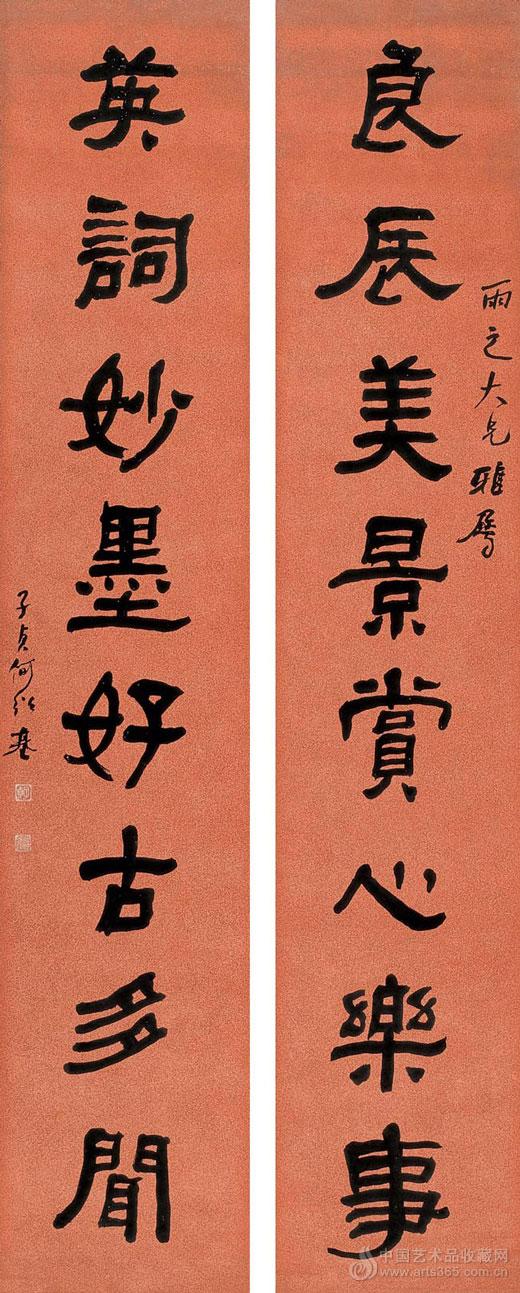 良辰美景賞心樂事
雨之大兄雅屬
英詞妙墨好古多聞
子貞何紹基
中国艺术品收藏网
www.arts365.com.cn